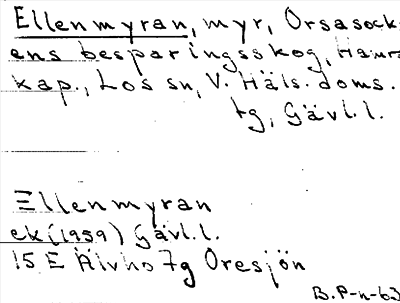 Ellenmyran, myr, Orsasock
ens besparingsskog, Hamra
kap., Los sn, V. Häls. doms.
tg, Gävl.l.
Ellenmyran
ek (1959) Gävl.l.
15 E Älvho 7g Oresjön
B.P-n-63